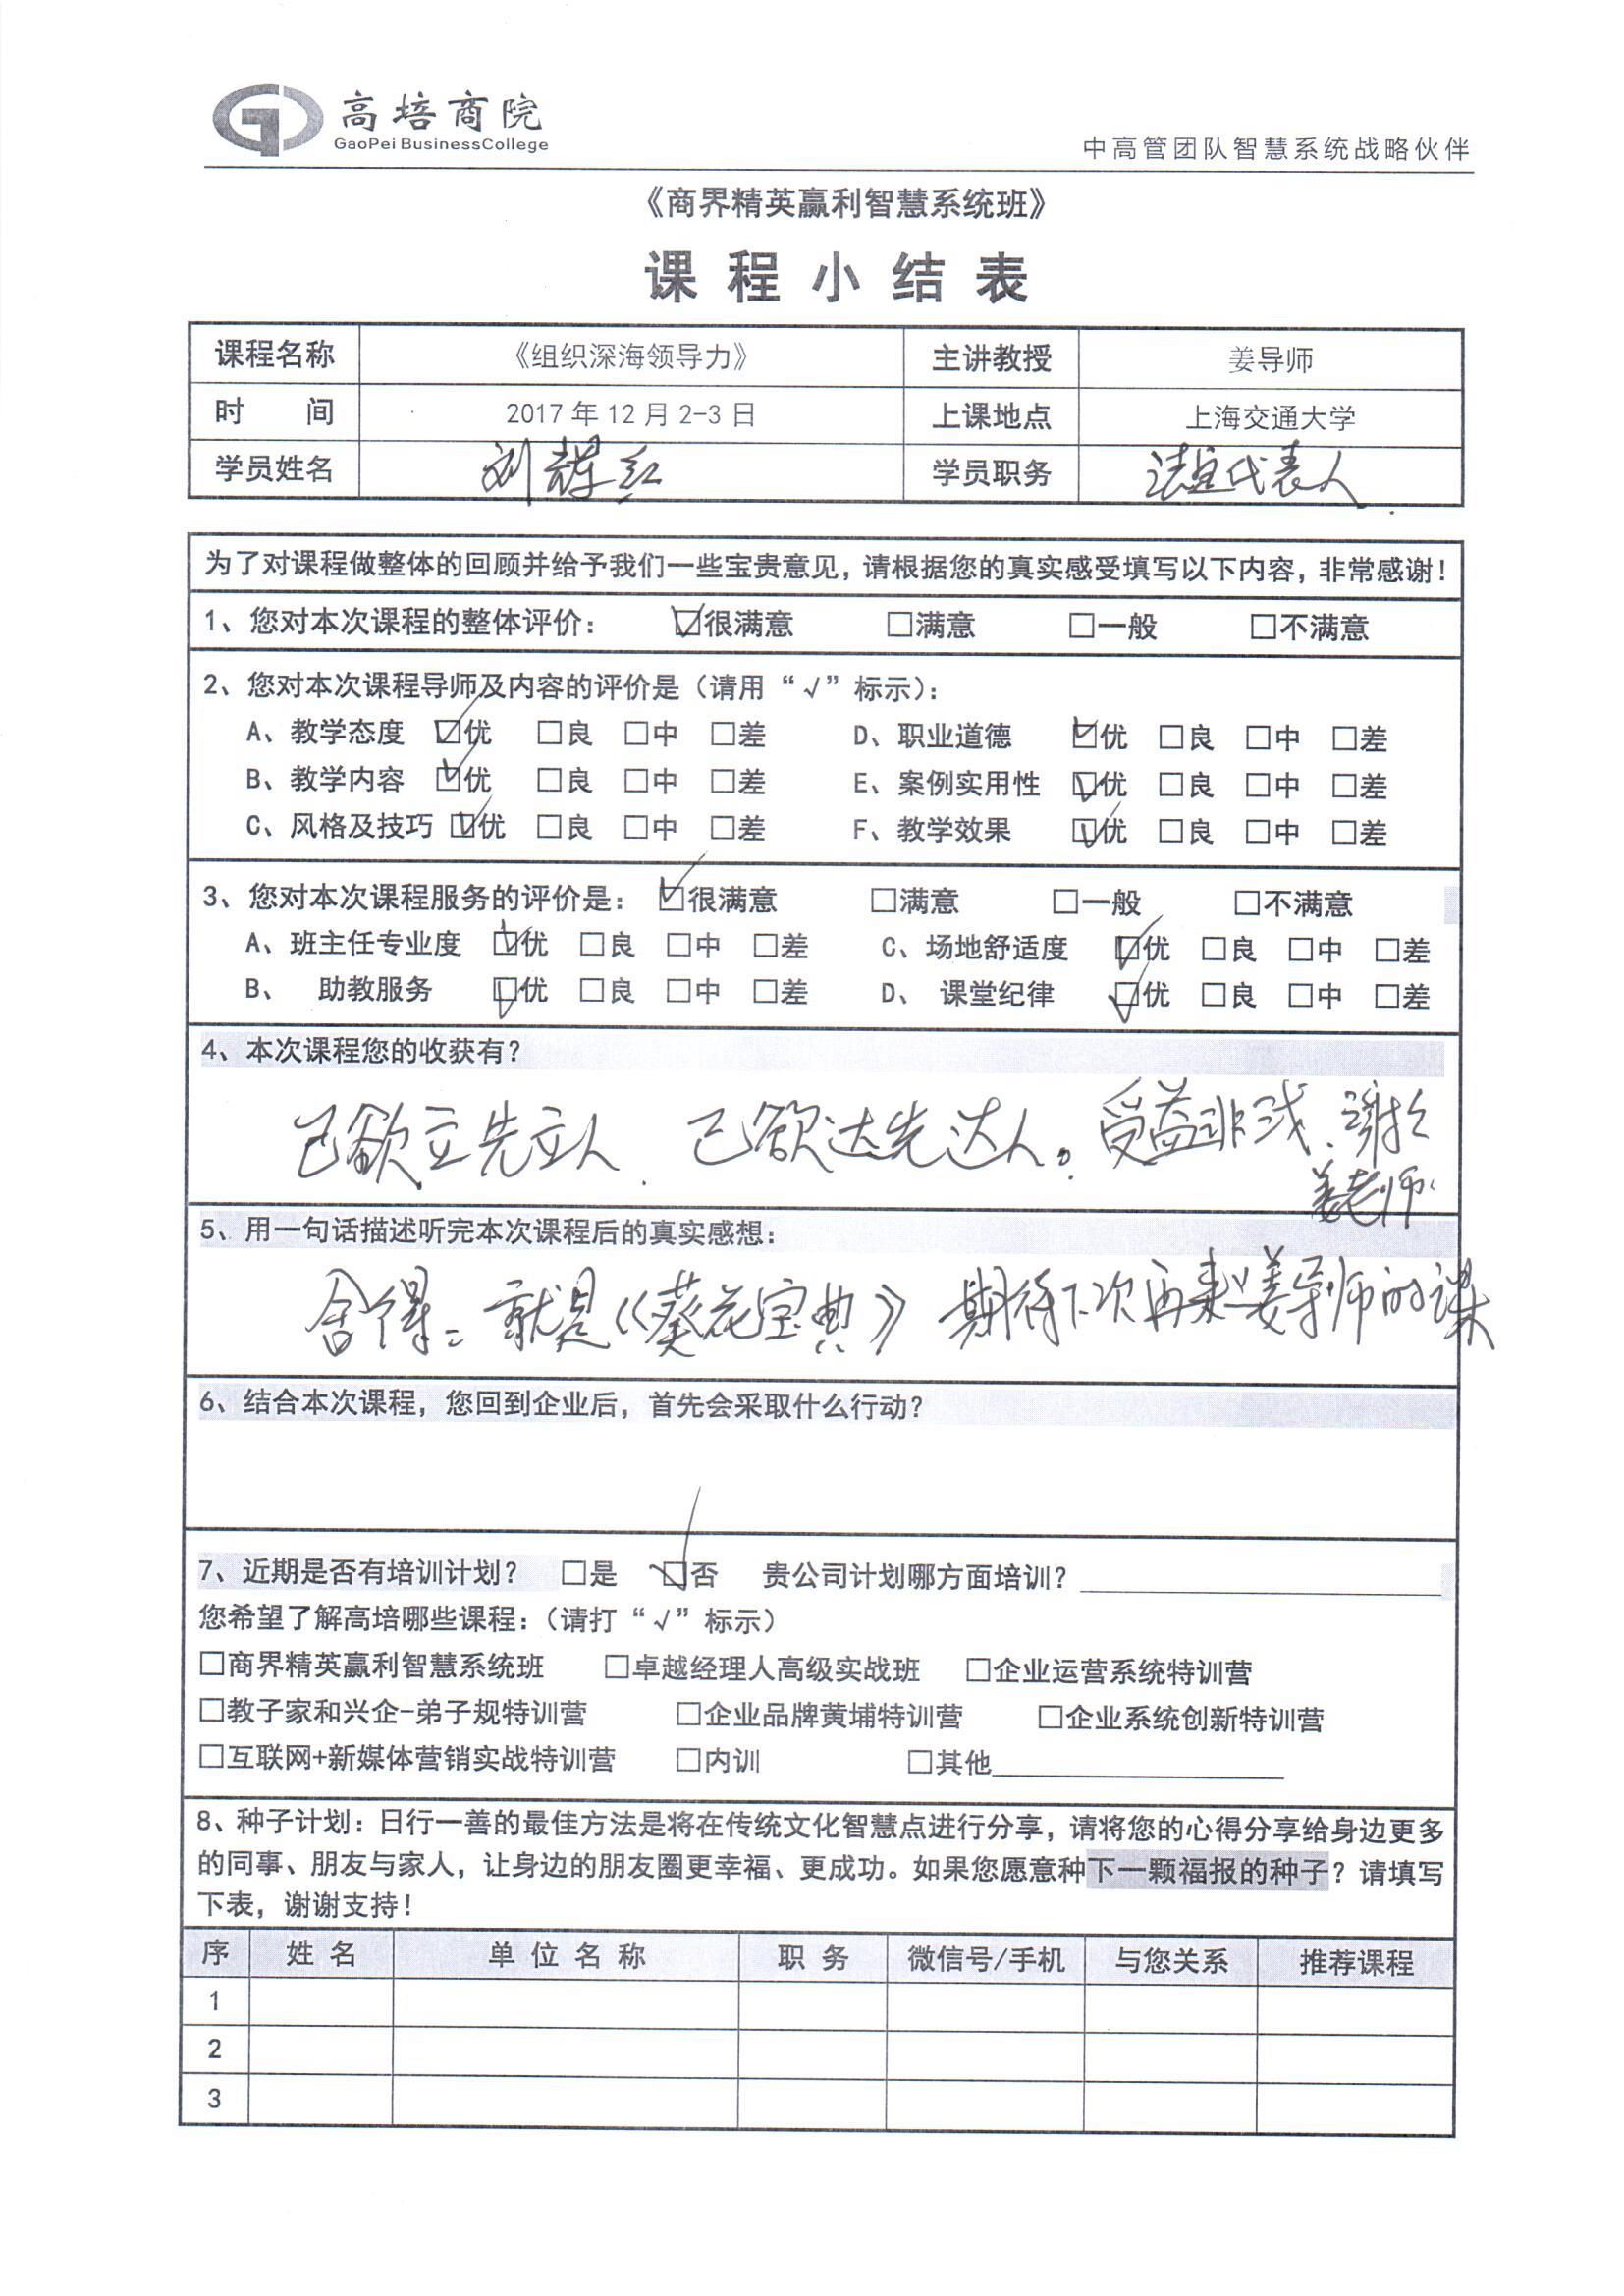 高培商院
GaoPei BusinessCollege
中高管团队智慧系统战略伙伴
《商界精英赢利智慧系统班》
课程小结表
课程名称 《组织深海领导力》 主讲教授 姜导师
时 间 2017年12月2-3日 上课地点 上海交通大学
学员姓名 刘辉红 学员职务 法定代表人
为了对课程做整体的回顾并给予我们一些宝贵意见，请根据您的真实感受填写以下内容，非常感谢！
1、您对本次课程的整体评价： ☑很满意 □满意 □一般 □不满意
2、您对本次课程导师及内容的评价是（请用“√”标示）：
A、教学态度 ☑优 □良 □中 □差 D、职业道德 ☑优 □良 □中 □差
B、教学内容 ☑优 □良 □中 □差 E、案例实用性 ☑优 □良 □中 □差
C、风格及技巧 ☑优 □良 □中 □差 F、教学效果 ☑优 □良 □中 □差
3、您对本次课程服务的评价是： ☑很满意 □满意 □一般 □不满意
A、班主任专业度 ☑优 □良 □中 □差 C、场地舒适度 ☑优 □良 □中 □差
B、 助教服务 ☑优 □良 □中 □差 D、 课堂纪律 ☑优 □良 □中 □差
4、本次课程您的收获有？
己欲立先立人、己欲达先达人。受益非浅、谢谢
姜老师
5、用一句话描述听完本次课程后的真实感想：
舍得：就是《葵花宝典》 期待下次再来姜导师的课
6、结合本次课程，您回到企业后，首先会采取什么行动？
7、近期是否有培训计划？ □是 ☑否 贵公司计划哪方面培训？
您希望了解高培哪些课程：（请打“√”标示）
□商界精英赢利智慧系统班 □卓越经理人高级实战班 □企业运营系统特训营
□教子家和兴企-弟子规特训营 □企业品牌黄埔特训营 □企业系统创新特训营
□互联网+新媒体营销实战特训营 □内训 □其他
8、种子计划：日行一善的最佳方法是将在传统文化智慧点进行分享，请将您的心得分享给身边更多
的同事、朋友与家人，让身边的朋友圈更幸福、更成功。如果您愿意种下一颗福报的种子？请填写
下表，谢谢支持！
序 姓名 单位名称 职务 微信号/手机 与您关系 推荐课程
1
2
3